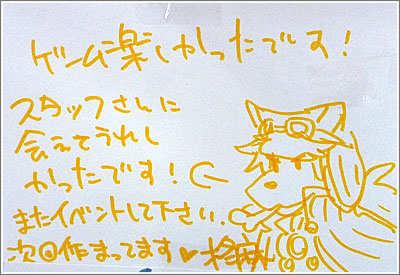 ゲーム楽しかったです！
スタッフさんに
会えてうれし
かったです！
またイベントして下さい。
次回作まってます♥